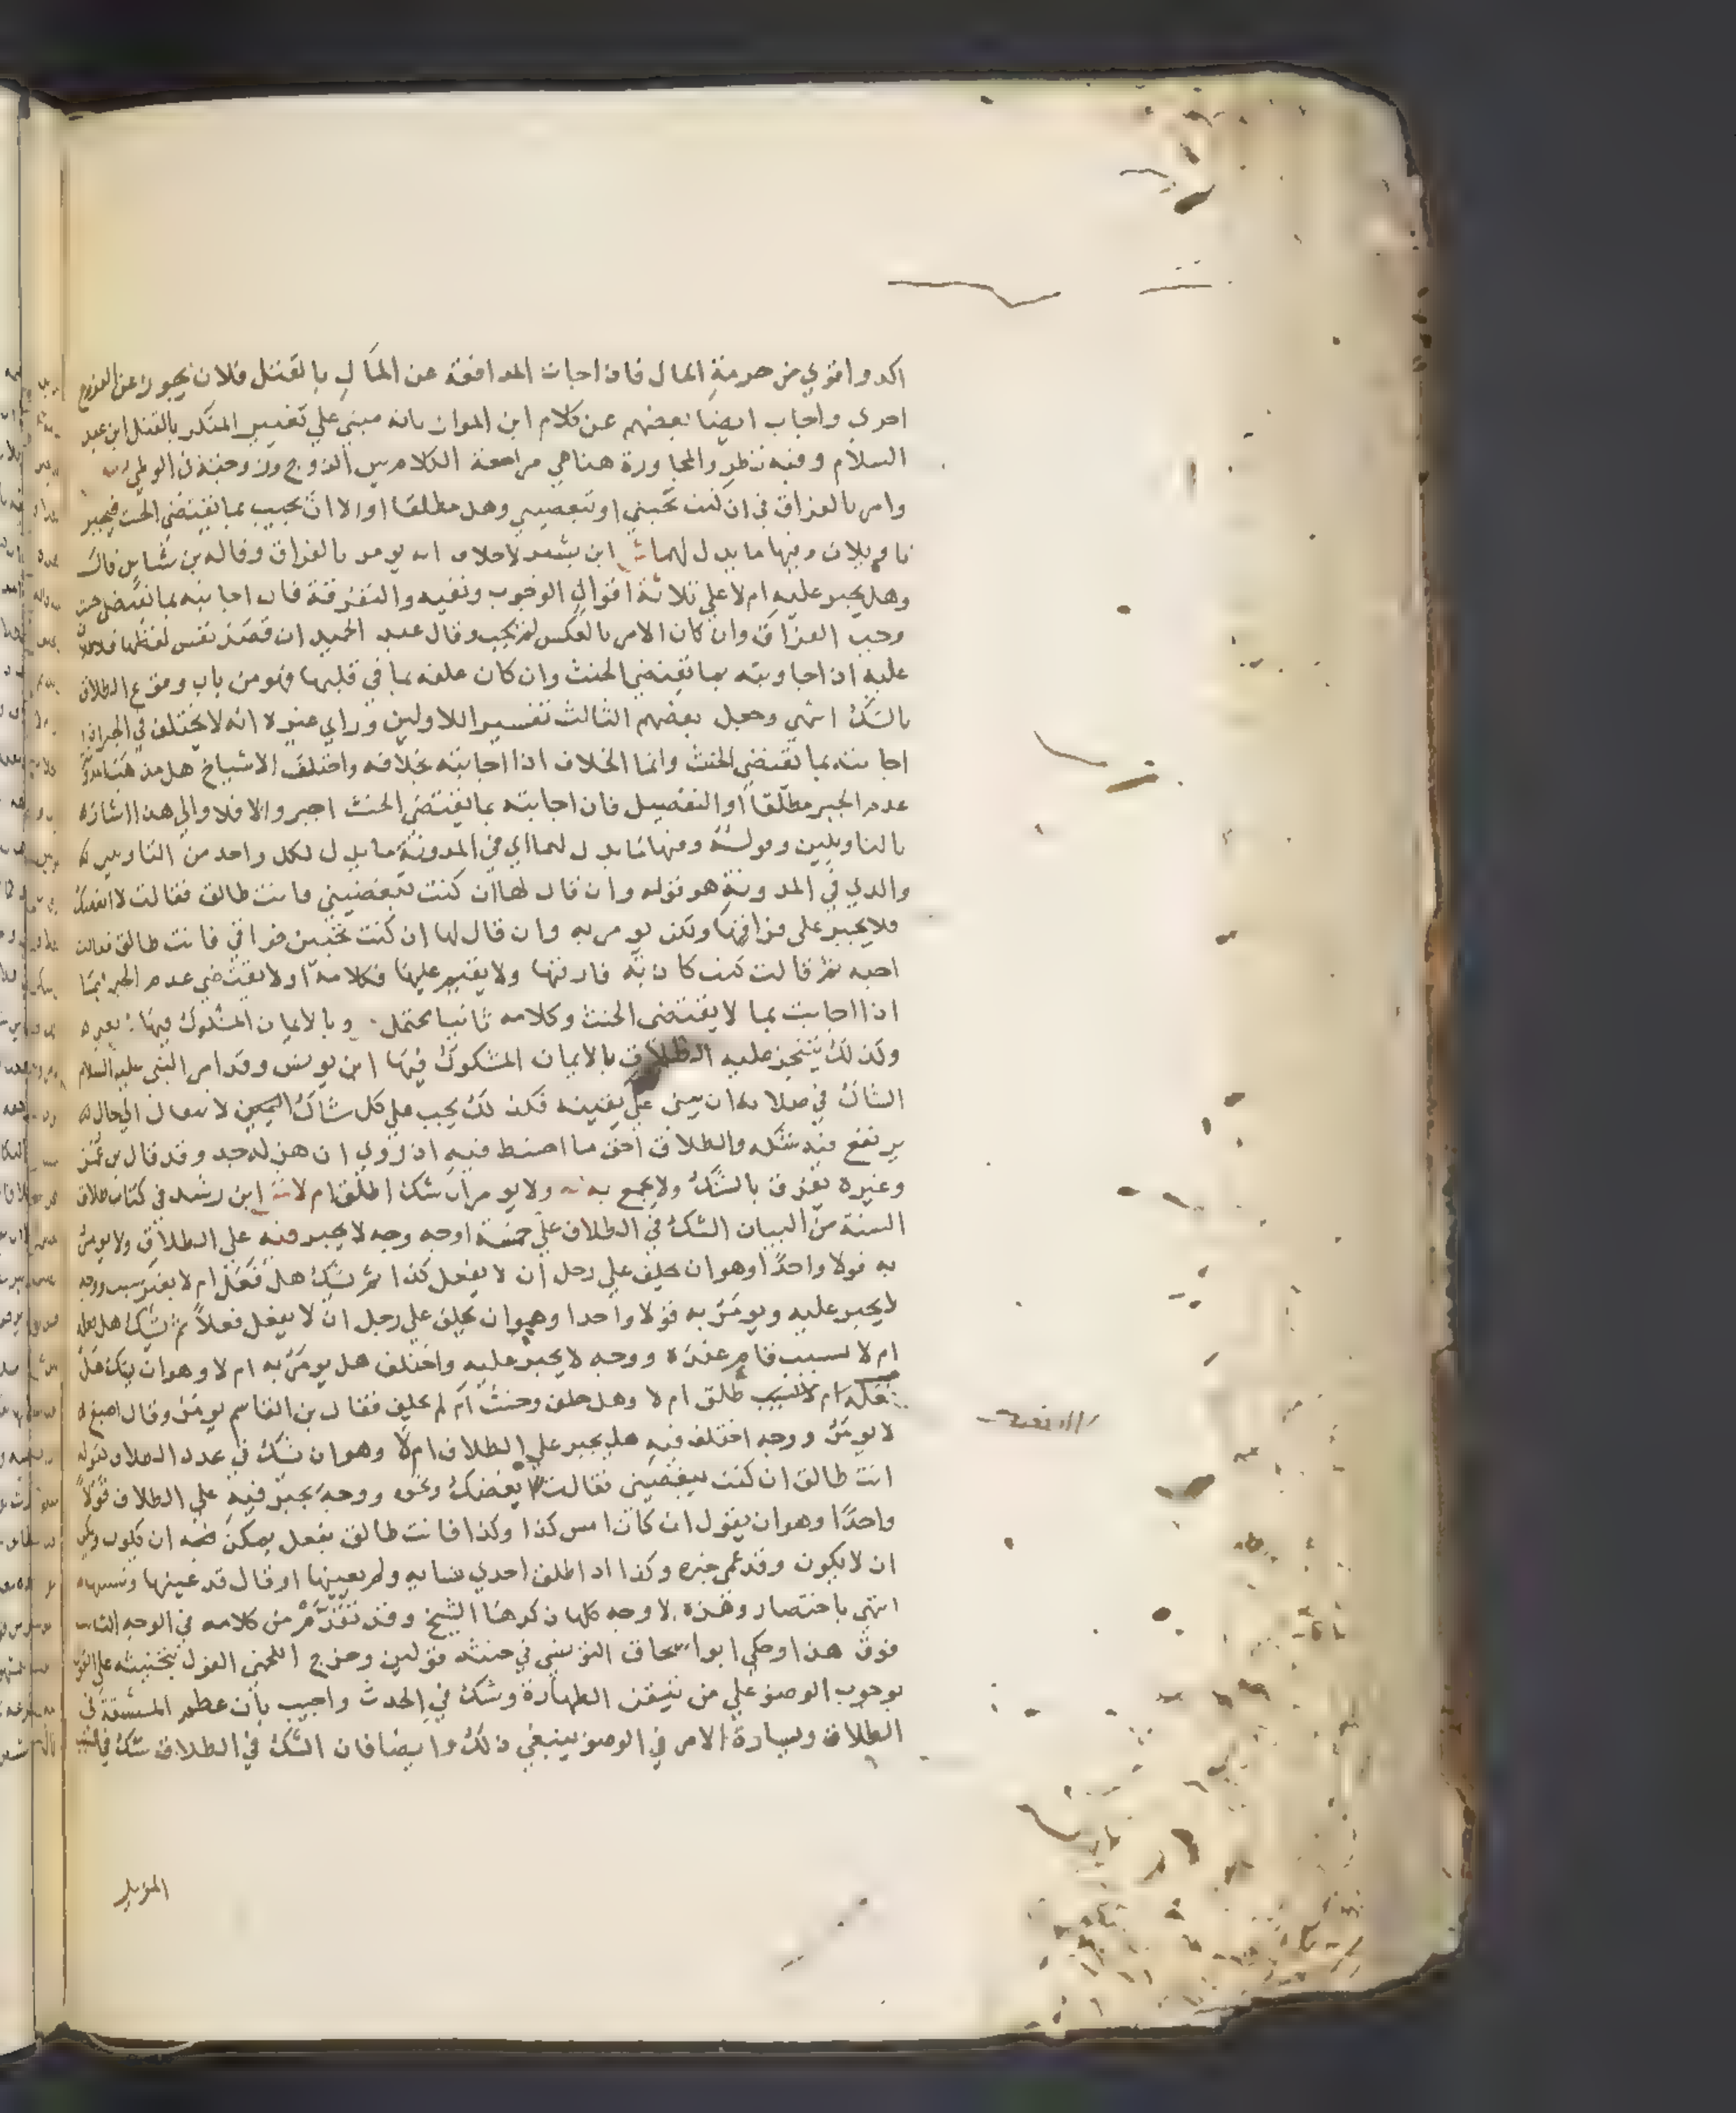 اكد واقوي من حرمة المال فاذا جات المدافعة عن المال بالقتل فلان يجوز عن الفروج
احري واجاب ايضا بعضهم عن كلام ابن المواز بانه مبني علي تغيير المنكر بالقتل ابن عبد
السلام وفيه نظر والمجاورة هنا هي مراجعة الكلام بين الزوج وزوجته
وامر بالفراق في ان كنت تحبيني او تبغضيني وهل مطلقا او الا ان تجيب بما يقتضي الحنث فيجبر
تاويلان وفيها ما يدل لهما ش ابن بشير لا خلاف انه يومر بالفراق وقاله بن شاس قال
وهل يجبر عليه ام لا علي ثلاثة اقوال الوجوب ونفيه والتفرقة فان اجابته بما يقتضي حنث
وجب الفراق وان كان الامر بالعكس لم يجب وقال عبد الحميد ان قصد نفس لفظها فلا طلاق
عليه اذا جاوبته بما يقتضي الحنث وان كان حلفه بما في قلبها فهو من باب وقوع الطلاق
بالشك انتهي وجعل بعضهم الثالث تفسيرا للاولين وراي غيره انه لا يختلف في الجبر اذا
اجابته بما تقتضي الحنث وانما الخلاف اذا اجابته بخلافه واختلف الاشياخ هل مذهب المدونة
عدم الجبر مطلقا او التفصيل فان اجابته بما يقتضي الحنث اجبر والا فلا والي هذا اشاره
بالتاويلين وقوله وفيها ما يدل لهما اي في المدونة ما يدل لكل واحد من التاويلين
والذي في المدونة هو قوله وان قال لها ان كنت تبغضيني فانت طالق فقالت لا ابغضك
فلا يجبر علي فراقها ولكن يومر به وان قال لها ان كنت تحبين فراقي فانت طالق فقالت
احبه ثم قالت كنت كاذبة فارقها ولا يقيم عليها فكلامه اولا يقتضي عدم الجبر فيما
اذا اجابت بما لا يقتضي الحنث وكلامه ثانيا محتمل وبالايمان المشكوك فيها
وكذلك يتنجز عليه الطلاق بالايمان المشكوك فيها ابن يونس وقد امر النبي عليه السلام
الشاك في صلاته ان يبني علي يقينه فكذلك يجب علي كل شاك اليمين لا
يرتفع فيه شكه والطلاق احق ما احتيط فيه اذ روي ان هزله جد وقد قال بن عمر
وغيره يفرق بالشك ولا يجمع به ولا يومر ان شك اطلق ام لا ش ابن رشد في كتاب طلاق
السنة من البيان الشك في الطلاق علي خمسة اوجه وجه لا يجبر فيه علي الطلاق ولا يومر
به قولا واحدا وهو ان يحلف علي رجل ان لا يفعل كذا ثم شك هل فعل ام لا بغير سبب ووجه
لا يجبر عليه ويومر به قولا واحدا وهو ان يحلف علي رجل ان لا يفعل فعلا ثم شك هل فعله
ام لا لسبب قام عنده ووجه لا يجبر عليه واختلف هل يومر به ام لا وهو ان يشك هل
طلق ام لا وهل حلف وحنث ام لم يحلف فقال بن القاسم يومر وقال اصبغ
لا يومر ووجه اختلف فيه هل يجبر علي الطلاق ام لا وهو ان شك في عدد الطلاق
انت طالق ان كنت تبغضيني فقالت لا ابغضك ونحوه ووجه يجبر فيه علي الطلاق قولا
واحدا وهو ان يقول ان كان امس كذا وكذا فانت طالق بفعل يمكن فيه ان يكون ويمكن
ان لا يكون وقد عمي خبره وكذا اذا طلق احدي نسايه ولم يعينها او قال قد عينها ونسيتها
انتهي باختصار وهذه الاوجه كلها ذكرها الشيخ وقد تقدم من كلامه في الوجه الثاني
فوق هذا وحكي ابو اسحاق التونسي في حنثه قولين وخرج اللخمي القول بتحنيثه علي القول
بوجوب الوضوء علي من تيقن الطهارة وشك في الحدث واجيب بان عظم المشقة في
الطلاق ويسارة الامر في الوضوء ينبغي ذلك وايضا فان الشك في الطلاق شك في